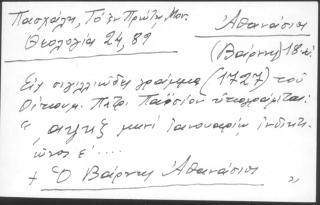 Πασχάλη, Τόμ. Πρώτη, Μον.
Θεολογία 24, 89
Ἀθανάσιος
(Βάρνης) 18-αι.
Εἰς σιγιλλιῶδες γράμμα (1727) τοῦ
Οἰκουμ. Πατρ. Παϊσίου ὑπογράφεται:
", αψκζ μηνὶ Ἰανουαρίῳ ἰνδικτι-
ῶνος ε´....
+ Ὁ Βάρνης Ἀθανάσιος "